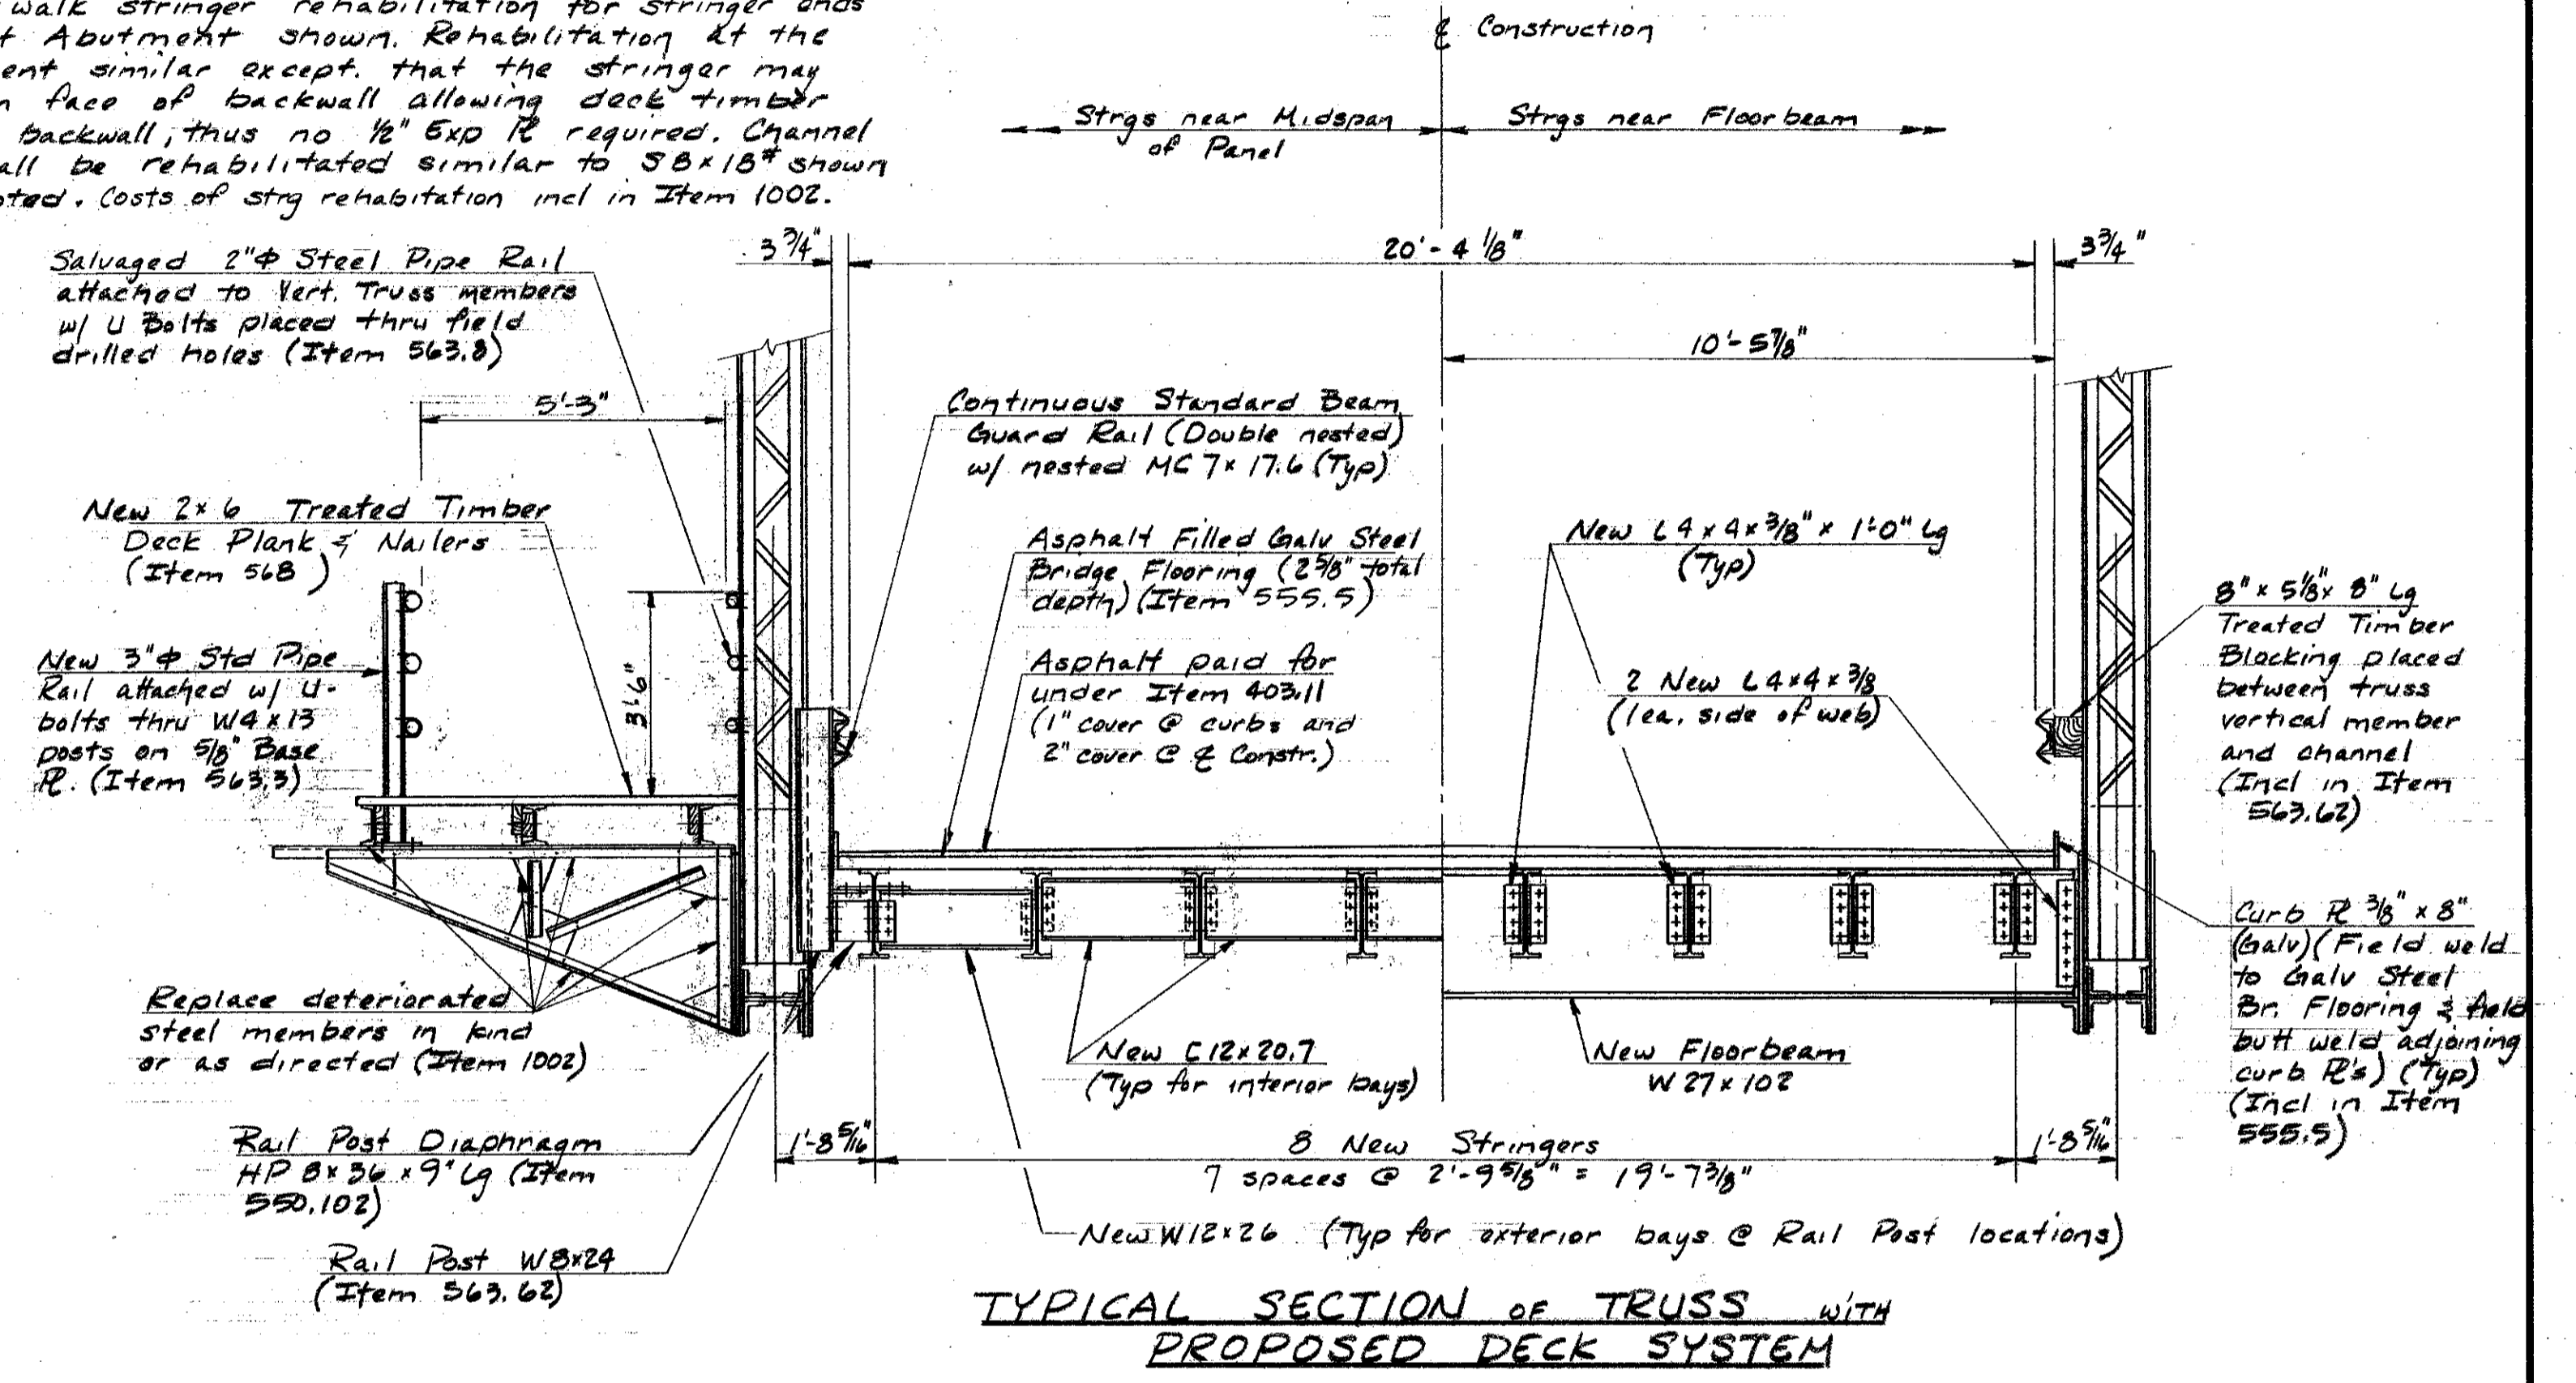 walk stringer rehabilitation for stringer ends
t Abutment shown. Rehabilitation at the
ent similar except. that the stringer may
n face of backwall allowing deck timber
backwall, thus no ½" Exp ℙ required. Channel
all be rehabilitated similar to S8×18# shown
oted. Costs of strg rehabitation incl in Item 1002.
℄ Construction
Strgs near Midspan
of Panel
Strgs near Floorbeam
3 3/4"
20'- 4 1/8"
3 3/4"
10'- 5 7/8"
Salvaged 2"Φ Steel Pipe Rail
attached to Vert. Truss members
w/ U Bolts placed thru field
drilled holes (Item 563.8)
5'-3"
Continuous Standard Beam
Guard Rail (Double nested)
w/ nested MC 7× 17.6 (Typ)
New 2×6 Treated Timber
Deck Plank & Nailers
(Item 568 )
Asphalt Filled Galv Steel
Bridge Flooring (2 5/8" total
depth) (Item 555.5)
New L 4 × 4 × 3/8" × 1'-0" Lg
(Typ)
8" × 5 1/8 × 8" Lg
Treated Timber
Blocking placed
between truss
vertical member
and channel
(Incl in Item
563.62)
New 3"Φ Std Pipe
Rail attached w/ U-
bolts thru W4×13
posts on 5/8" Base
ℙ. (Item 563.3)
3'-6"
Asphalt paid for
under Item 403.11
(1" cover @ curbs and
2" cover @ ℄ Constr.)
2 New L 4×4×3/8
(1 ea. side of web)
Curb ℙ 3/8" × 8"
(Galv) (Field weld
to Galv Steel
Br. Flooring & field
butt weld adjoining
curb ℙ's) (Typ)
(Incl in Item
555.5)
Replace deteriorated
steel members in kind
or as directed (Item 1002)
New C 12×20.7
(Typ for interior bays)
New Floorbeam
W 27×102
Rail Post Diaphragm
HP 8×36 × 9" Lg (Item
550.102)
1'-8 5/16"
8 New Stringers
7 spaces @ 2'-9 5/8" = 19'-7 3/8"
1'-8 5/16
New W12×26 (Typ for exterior bays @ Rail Post locations)
Rail Post W8×24
(Item 563.62)
TYPICAL SECTION OF TRUSS WITH
PROPOSED DECK SYSTEM